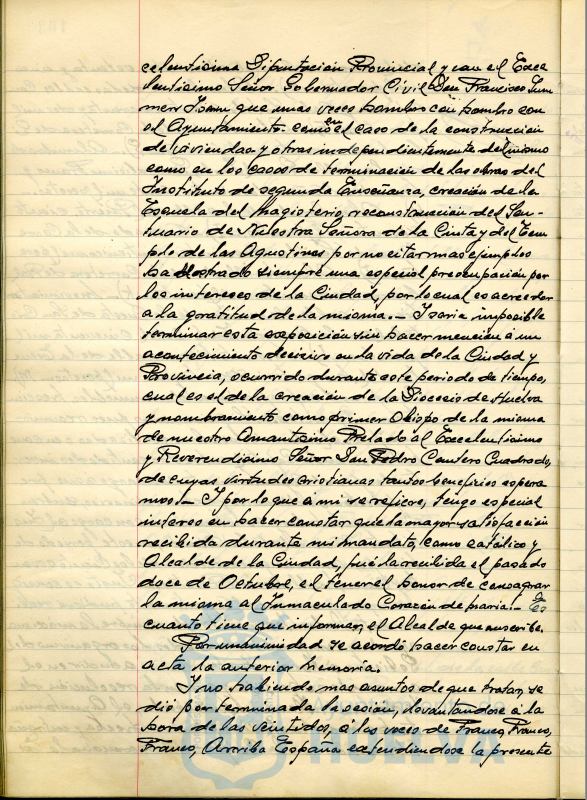 celentísima Diputación Provincial y con el Exce
lentísimo Señor Gobernador Civil Don Francisco Sum
mers Isern que unas veces hombro con hombro con
el Ayuntamiento. como en el caso de la construcción
de viviendas y otras independientemente del mismo
como en los casos de terminación de las obras del
Instituto de segunda Enseñanza, creación de la
Escuela del Magisterio, reconstrucción del San-
tuario de Nuestra Señora de la Cinta y del Tem
plo de las Agustinas por no citar mas ejemplos
ha mostrado siempre una especial preocupación por
los intereses de la Ciudad, por lo cual es acreedor
a la gratitud de la misma. — Y seria imposible
terminar esta exposición sin hacer mención a un
acontecimiento decisivo en la vida de la Ciudad y
Provincia, ocurrido durante este periodo de tiempo,
cual es el de la creación de la Diocesis de Huelva
y nombramiento como primer Obispo de la misma
de nuestro Amantísimo Prelado al Excelentísimo
y Reverendísimo Señor Don Pedro Cantero Cuadrado,
de cuyas virtudes cristianas tantos beneficios espera
mos. — Y por lo que a mi se refiere, tengo especial
interes en hacer constar que la mayor satisfacción
recibida durante mi mandato, como católico y
Alcalde de la Ciudad, fué la recibida el pasado
doce de Octubre, el tener el honor de consagrar
la misma al Inmaculado Corazón de María. — Es
cuanto tiene que informar, el Alcalde que suscribe.
Por unanimidad se acordó hacer constar en
acta la anterior memoria.
Y no habiendo mas asuntos de que tratar, se
dió por terminada la sesión, levantandose a la
hora de las veintidos, a las voces de Franco, Franco,
Franco, Arriba España extendiendose la presente
HUELVA